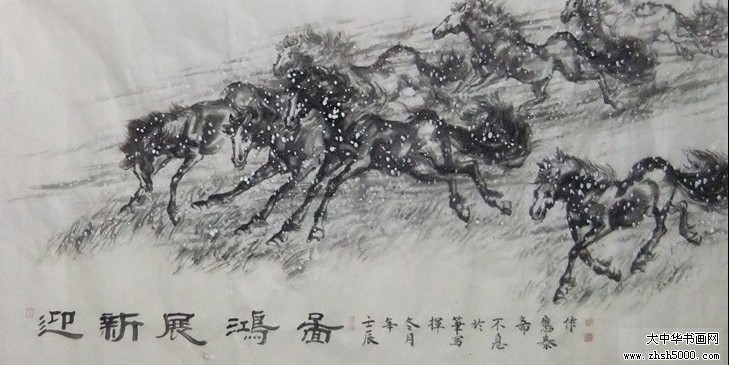 迎新展鴻圖
壬辰年冬月揮筆写於不息斋應泰作
大中华书画网
www.zhsh5000.com